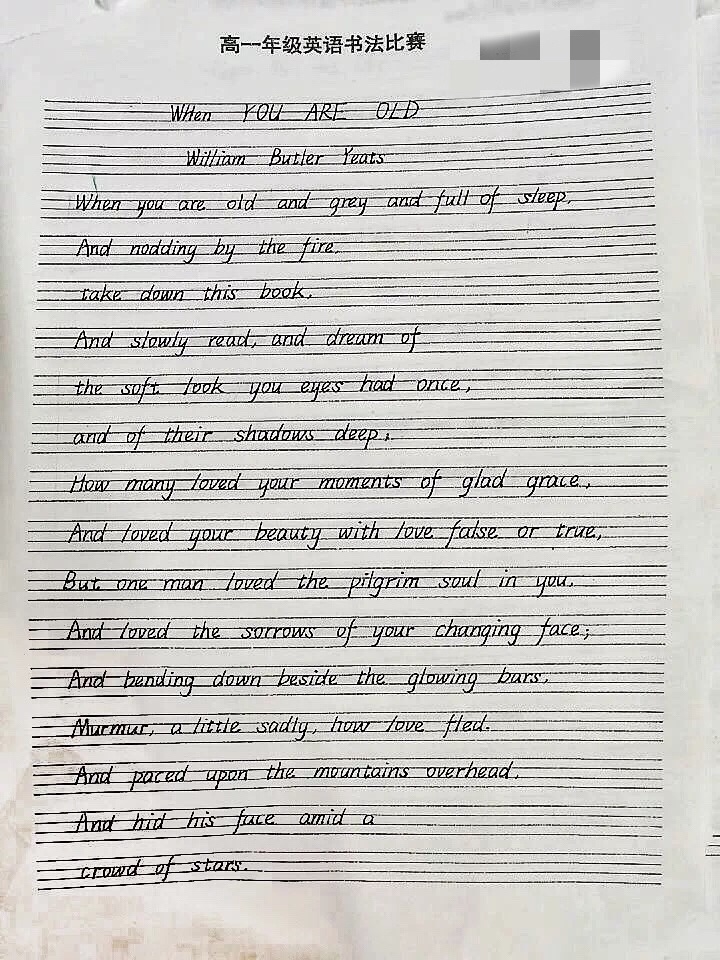 高一年级英语书法比赛
WHen YOU ARE OLD
William Butler Yeats
When you are old and grey and full of sleep,
And nodding by the fire,
take down this book,
And slowly read, and dream of
the soft look you eyes had once,
and of their shadows deep;
How many loved your moments of glad grace,
And loved your beauty with love false or true,
But one man loved the pilgrim soul in you,
And loved the sorrows of your changing face;
And bending down beside the glowing bars,
Murmur, a little sadly, how love fled.
And paced upon the mountains overhead,
And hid his face amid a
crowd of stars.